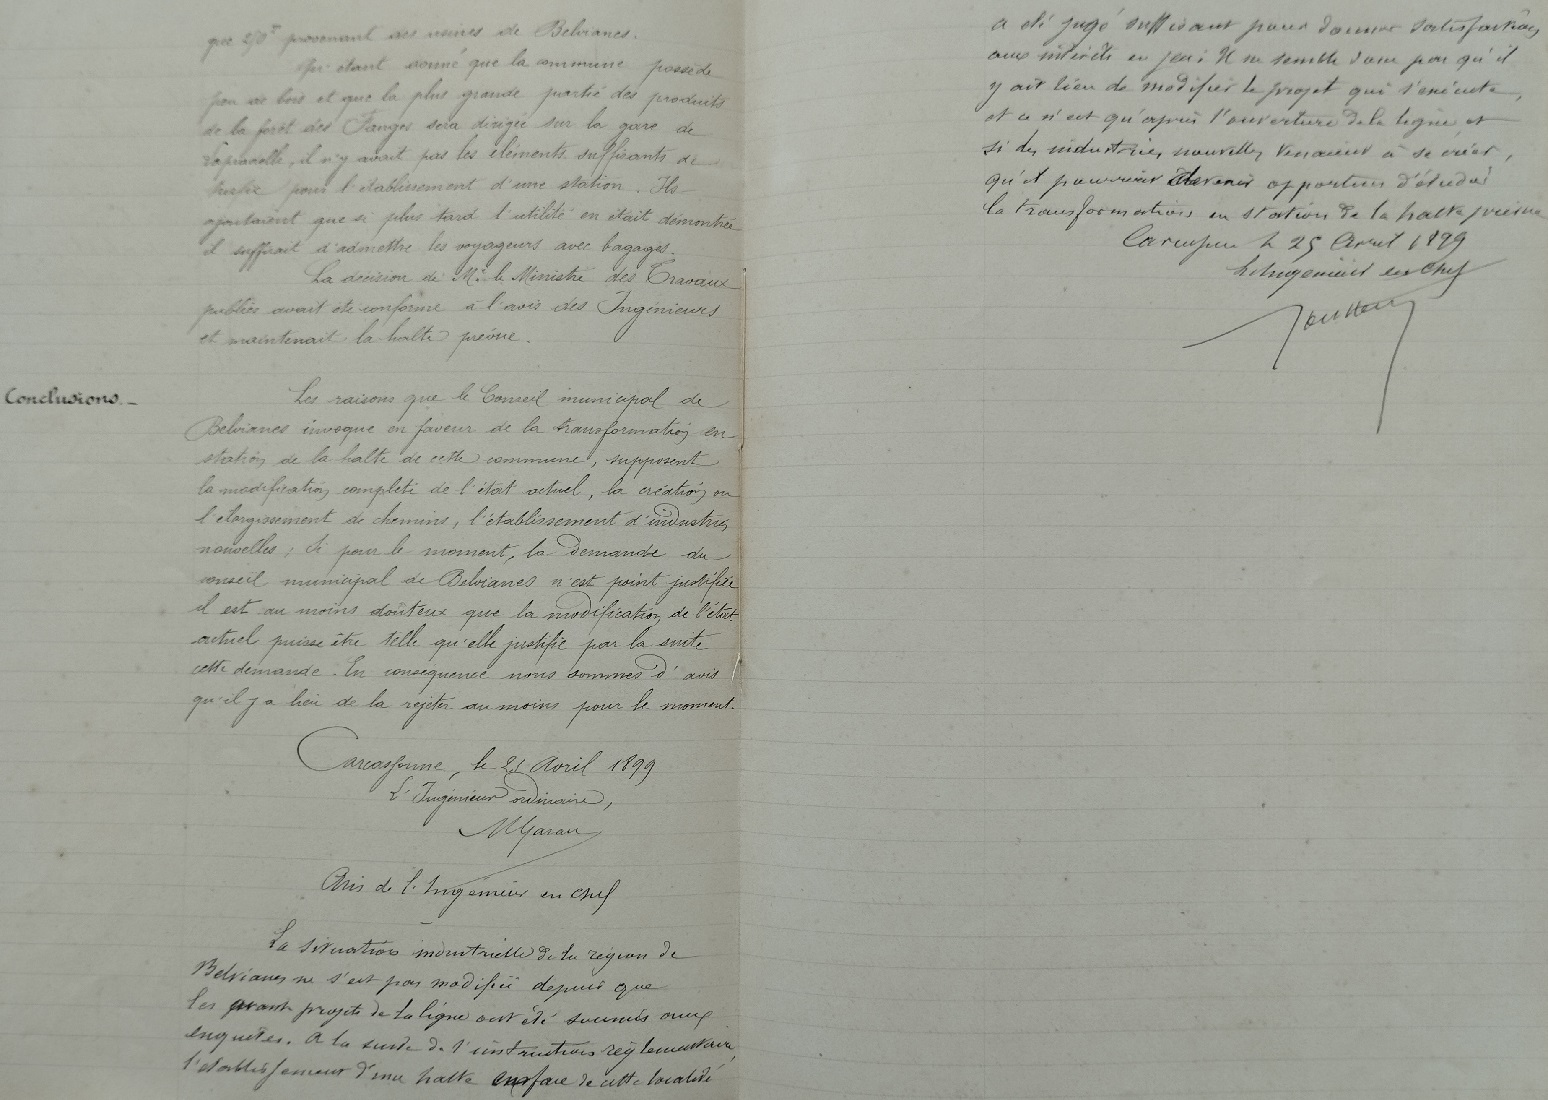 que 250T provenant des usines de Belvianes.
Qu'étant donné que la commune possède
peu de bois et que la plus grande partie des produits
de la forêt des Fanges sera dirigée sur la gare de
Lapradelle, il n'y avait pas les éléments suffisants de
trafic pour l'établissement d'une station. Ils
ajoutaient que si plus tard l'utilité en était démontrée
il suffirait d'admettre les voyageurs avec bagages.
La décision de Mr. le Ministre des Travaux
publics avait été conforme à l'avis des Ingénieurs
et maintenait la halte prévue.
Conclusions.
Les raisons que le Conseil municipal de
Belvianes invoque en faveur de la transformation en
station de la halte de cette commune, supposent
la modification complète de l'état actuel, la création ou
l'élargissement de chemins, l'établissement d'industries
nouvelles ; si pour le moment, la demande du
conseil municipal de Belvianes n'est point justifiée
il est au moins douteux que la modification de l'état
actuel puisse être telle qu'elle justifie par la suite
cette demande. En conséquence nous sommes d'avis
qu'il y a lieu de la rejeter au moins pour le moment.
Carcassonne, le 21 Avril 1899
L'Ingénieur ordinaire,
Avis de l'Ingénieur en chef
La situation industrielle de la région de
Belvianes ne s'est pas modifiée depuis que
les avant projets de la ligne ont été soumis aux
enquêtes. A la suite de l'instruction réglementaire,
l'établissement d'une halte en face de cette localité
a été jugé suffisant pour donner satisfaction
aux intérêts en jeu. Il ne semble donc pas qu'il
y ait lieu de modifier le projet qui s'exécute,
et ce n'est qu'après l'ouverture de la ligne et
si des industries nouvelles venaient à se créer,
qu'il pourrait devenir opportun d'étudier
la transformation en station de la halte prévue
Carcassonne le 25 Avril 1899
L'Ingénieur en chef